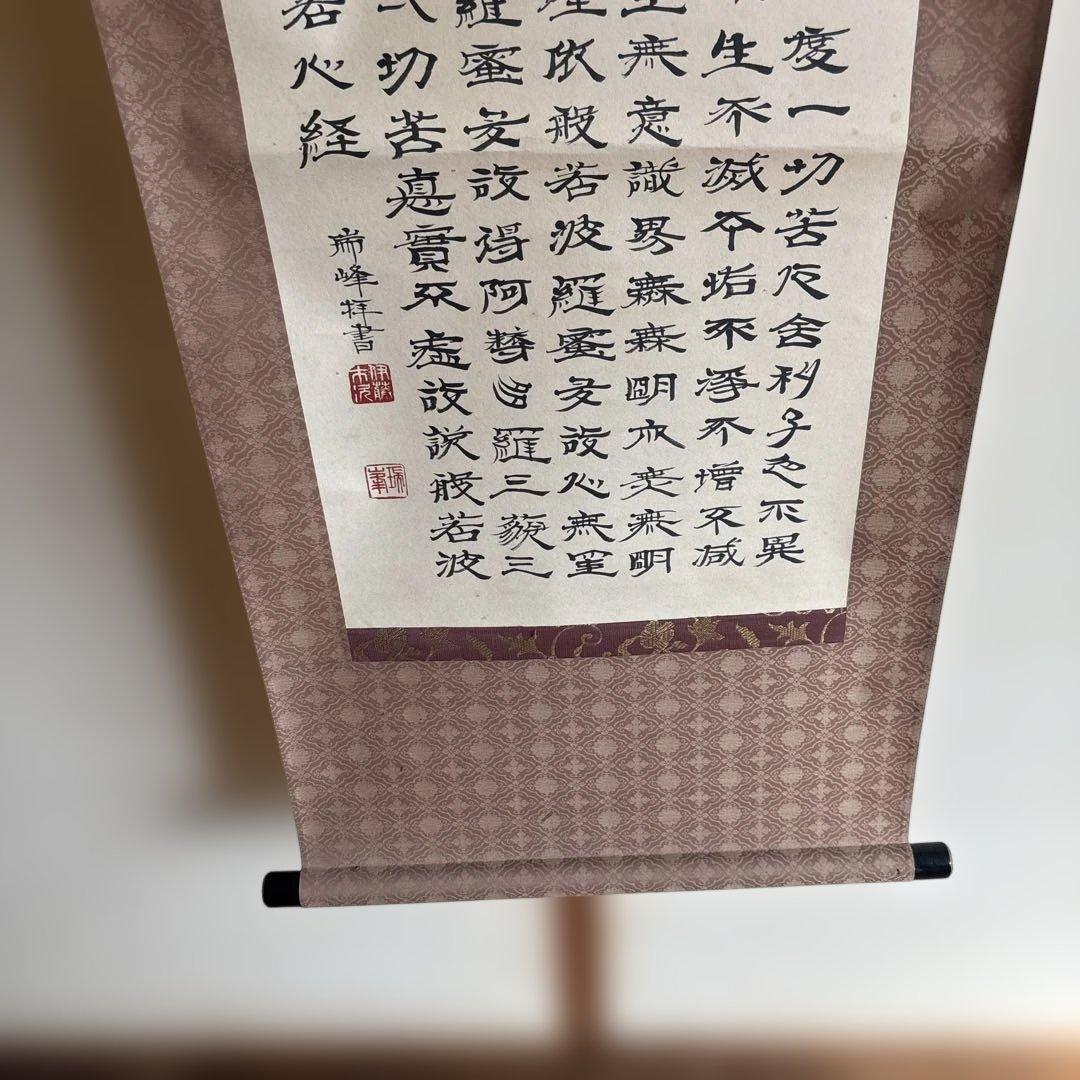 度一切苦厄舍利子色不異
生不滅不垢不淨不增不減
無意識界無無明亦無無明
依般若波羅蜜多故心無罣
羅蜜多故得阿耨多羅三藐三
切苦真實不虚故説般若波
若心経
峰拝書
伊藤
瑞峯